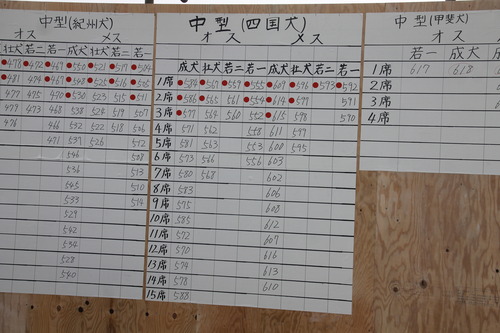 中型(紀州犬)
オス メス
壮犬 若二 若一 成犬 壮犬 若二 若一
478 472 469 550 521 517
481 474 467 548 525 516 505
477 475 470 530 523 515 541
479 473 468 538 524 519 507
476 466 532 522 518 506
471 537 526 512
546
536 513
545 510
533 514
529
542
534
528
540
中型(四国犬)
オス メス
成犬 壮犬 若二 若一 成犬 壮犬 若二 若一
1席 574 567 559 554 607 596 593 592
2席 586 565 561 555 614 599 591
3席 577 564 560 552 615 598 590
4席 571 562 558 611 597
5席 581 563 553 600 595
6席 573 566 556 603
7席 580 568 602
8席 583 606
9席 575 608
10席 585 612
11席 572 607
12席 570 616
13席 574 613
14席 578 610
15席 588
中型(甲斐犬)
オス
若一 成犬
1席 617 618
2席
3席
4席